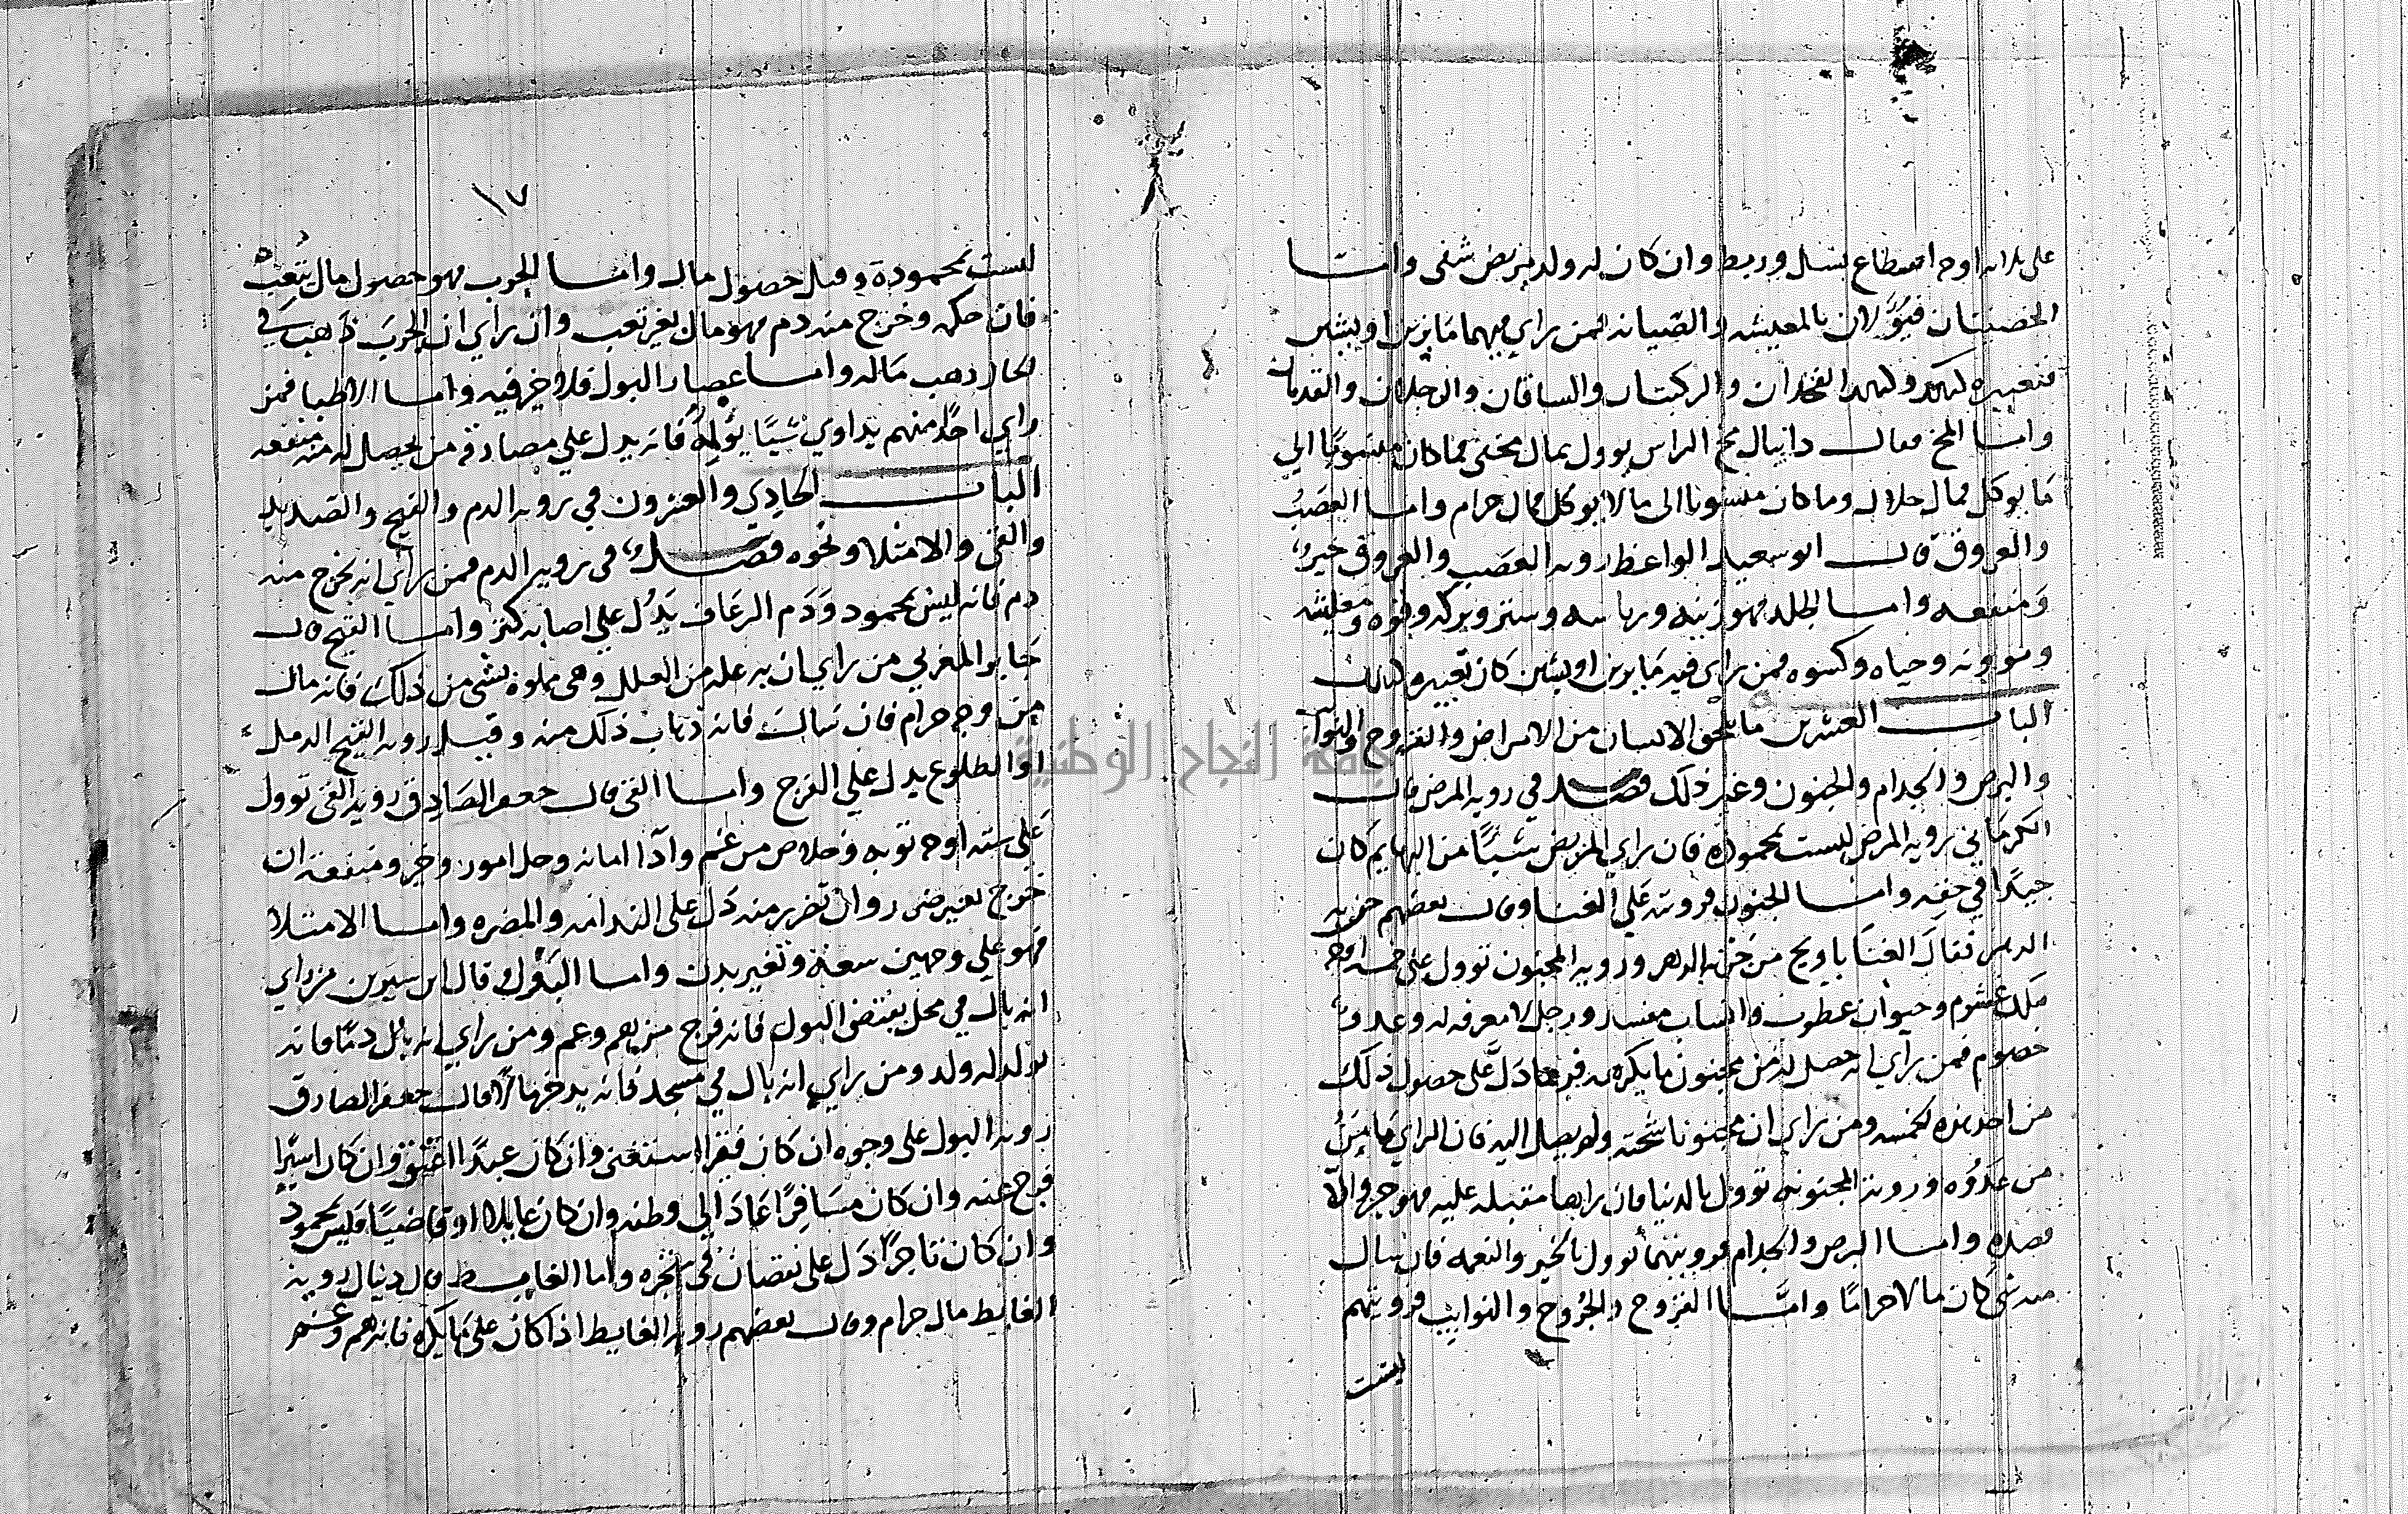 على ثلاثه اوجه انقطاع نسل وربط وان كان له ولد مريض شفى وامـا
الخصيتان فيؤلان بالمعيشه والصيانه فمن راى فيهما ما يزين او يشين
فتعبيره كهو وكذا الفخدان والركبتان والساقان والرجلان والقدمان
وامـا المخ فقال دانيال مخ الراس يوول بمال مخفى فما كان منسوبًا الي
مَا يوكل فمال حلال وما كان منسوبا الى ما لا يوكل فمال حرام وامـا العصَبُ
والعروق قال ابو سعيد الواعظ رويه العصَب والعروق خير
ومنفعه وامـا الجلد فهو زينه ورياسه وستر وبركه وقوه ومعيشه
وموونه وحياه وكسوه فمن راى فيه مَا يزين او يشين كان تعبيره كذلك
الباب العشرين ما يلحق الانسان من الامراض والقروح والنوائب
والبرص والجدام والجنون وغير ذلك فصل في رويه المرض قال
الكرمَاني رويه المرض ليست بمحموده فان راي المريض شيئًا من البهايم كان
جيدًا في حقه وامـا الجنون فرويته عَلي الغنا وقال بعضهم جن به
الدهر فقال الغنَا ياويح من جن به الدهر ورويه المجنون توول على خمسه اوجه
ملك غشوم وحيوان عطوب وانسان مفسد ورجل لا معرفه له وعدو
خصوم فمن راي انه حصل له من مجنون ما يكره فربما دَلَّ على حصول ذلك
من احد هذه الخمسه ومن راي ان مجنونا شحته ولم يصل اليه فان الراي يَامَنُ
من عَدُوّه ورويه المجنونه توول بالدنيا فان راها مقبله عليه فهو خير والا
فضده وامـا البرص والجدام فرويتهما توول بالخير والنعمه فان سال
منه شى كان مالا حرامًا وامَّـا القروح والجُرُوح والنوايب فرويتهم
ليست
١٧
ليست بمحمودة وقيل حصول مال وامـا الجرب فهو حصول مال بتَعبْ
فان حكه وخرج منه دم فهو مال بغير تعب وان راي ان الجربَ ذَهبَ في
الحال ذهب مَاله وامـا عصار البول فلا خير فيه وامـا الاطبا فمن
راي احدًا منهم يداوي شيئًا يؤلِمهُ فانه يدل علي مصادقه من يحصل له منه منفعه
الباب الحادِي والعشرون في رويه الدم والقيح والصديد
والقى والامتلا ونحوه فصل في رويه الدم فمن راي انه يخرج منه
دم فانه ليس بمحمود وَدَم الرعَاف يَدُل علي اصابه كنز وامـا القيح قال
جَابر المغربي من راي ان به عله من العلل وهى مملوه بشى من ذلك فانه مال
مِن وجه حرام فان سالت فانه ذهاب ذلك منه وقيل رويه القيح الدمل
او الطلوع يدل علي الفرج وامـا القى قال جعفر الصَادِق رويه القى توول
عَلي سته اوجه توبه وخلاص من غم وادَآ امانه وحل امور وخير ومنفعه ان
خرج بغير ضرر وان تضرر منه دَل على الندامه والمضره وامـا الامتلا
فهو علي وجهين سعه وتغير بدن وامـا البَول قال ابن سيرين من راي
انه بال في محل يقتضى البول فانه فرج من هم وغم ومن راي انه بال دمًا فانه
يولد له ولد ومن راي انه بال في مسجد فانه يدخر مالا وقال جعفر الصادق
رويه البول على وجوه ان كان فقيرا استغنى وان كان عبدًا اعتِق وان كان اسيرًا
فرج عنه وان كان مسَافِرًا عَادَ الي وطنه وان كان عاملا او قاضيًا فليس بمحمود
وان كان تاجرًا دَل على نقصان في تجره واما الغايط قال دنيال رويه
الغايط مال حرام وقال بعضهم رويه الغايط اذا كان على مَا يكره فانه هم وغم